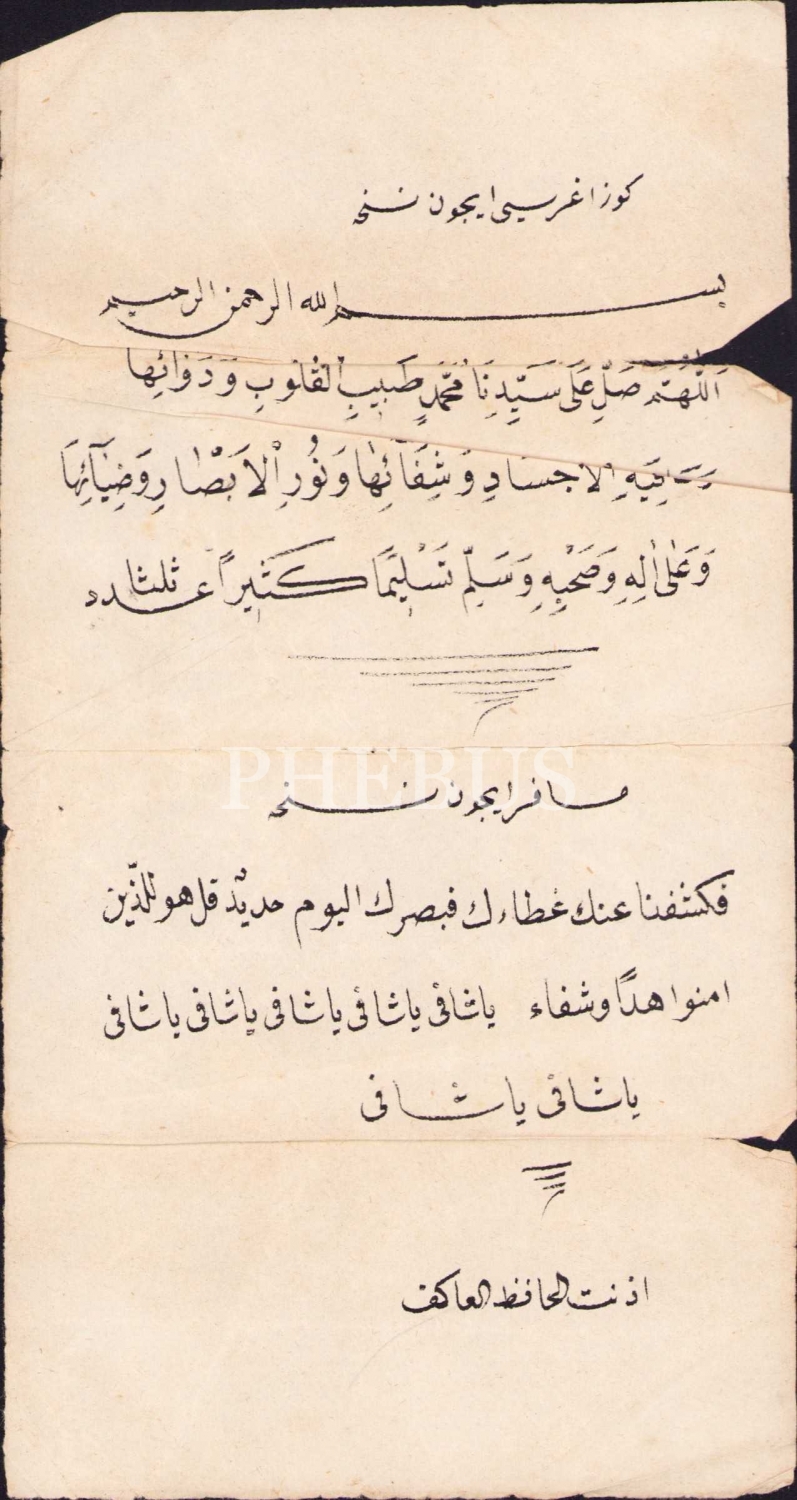 كوز اغرسى ايچون نسخه
بسم الله الرحمن الرحيم
اَللّٰهُمَّ صَلِّ عَلَى سَيِّدِنَا مُحَمَّدٍ طَبِيبِ الْقُلُوبِ وَدَوَائِهَا
الْاَجْسَادِ وَشِفَآئِهَا وَنُورِ الْاَبْصَارِ وَضِيَآئِهَا
وَعَلٰى اٰلِهِ وَصَحْبِهِ وَسَلِّمْ تَسْلِيمًا كَثِيرًا عدد ثلثا
PHEBUS
مسافر ايچون نسخه
فكشفنا عنك غطاءك فبصرك اليوم حديدٌ قل هو للذّين
امنوا هدًا وشفاء ياشافى ياشافى ياشافى ياشافى ياشافى
ياشافى ياشافى
اذنت الحافظ العاكف